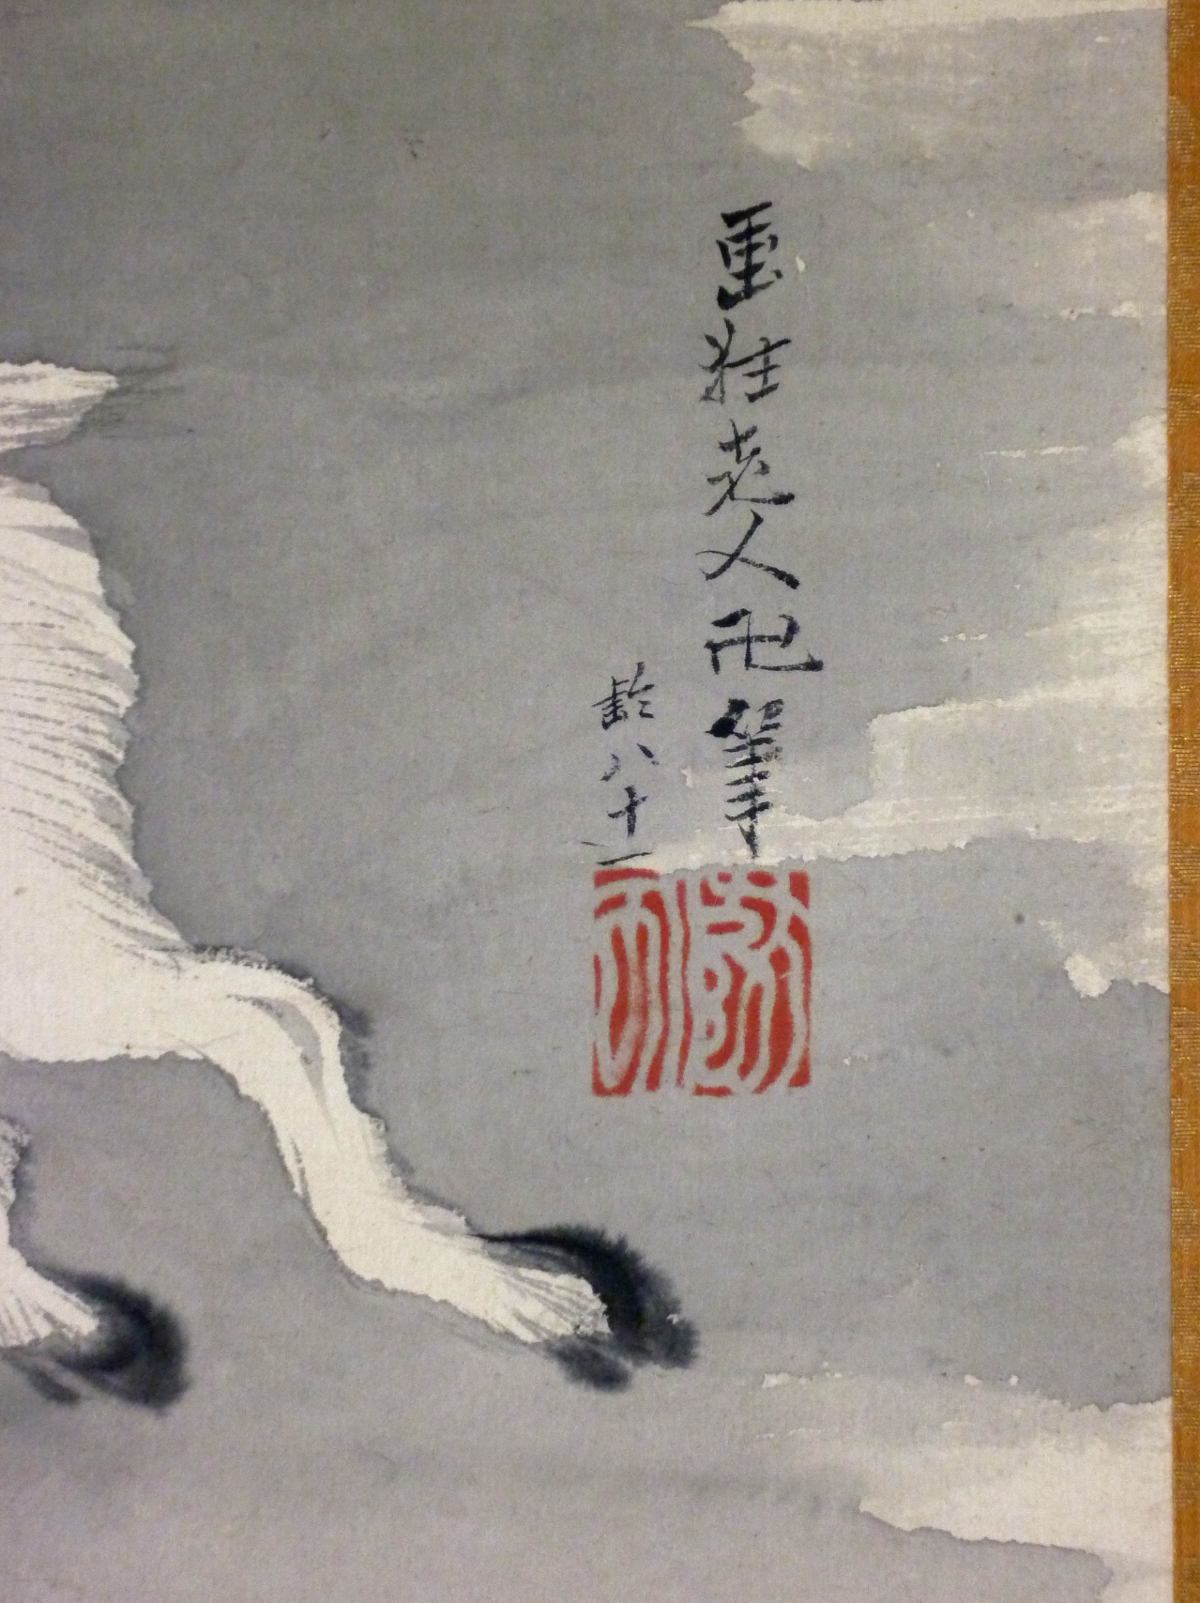 画狂老人卍筆
齢八十一